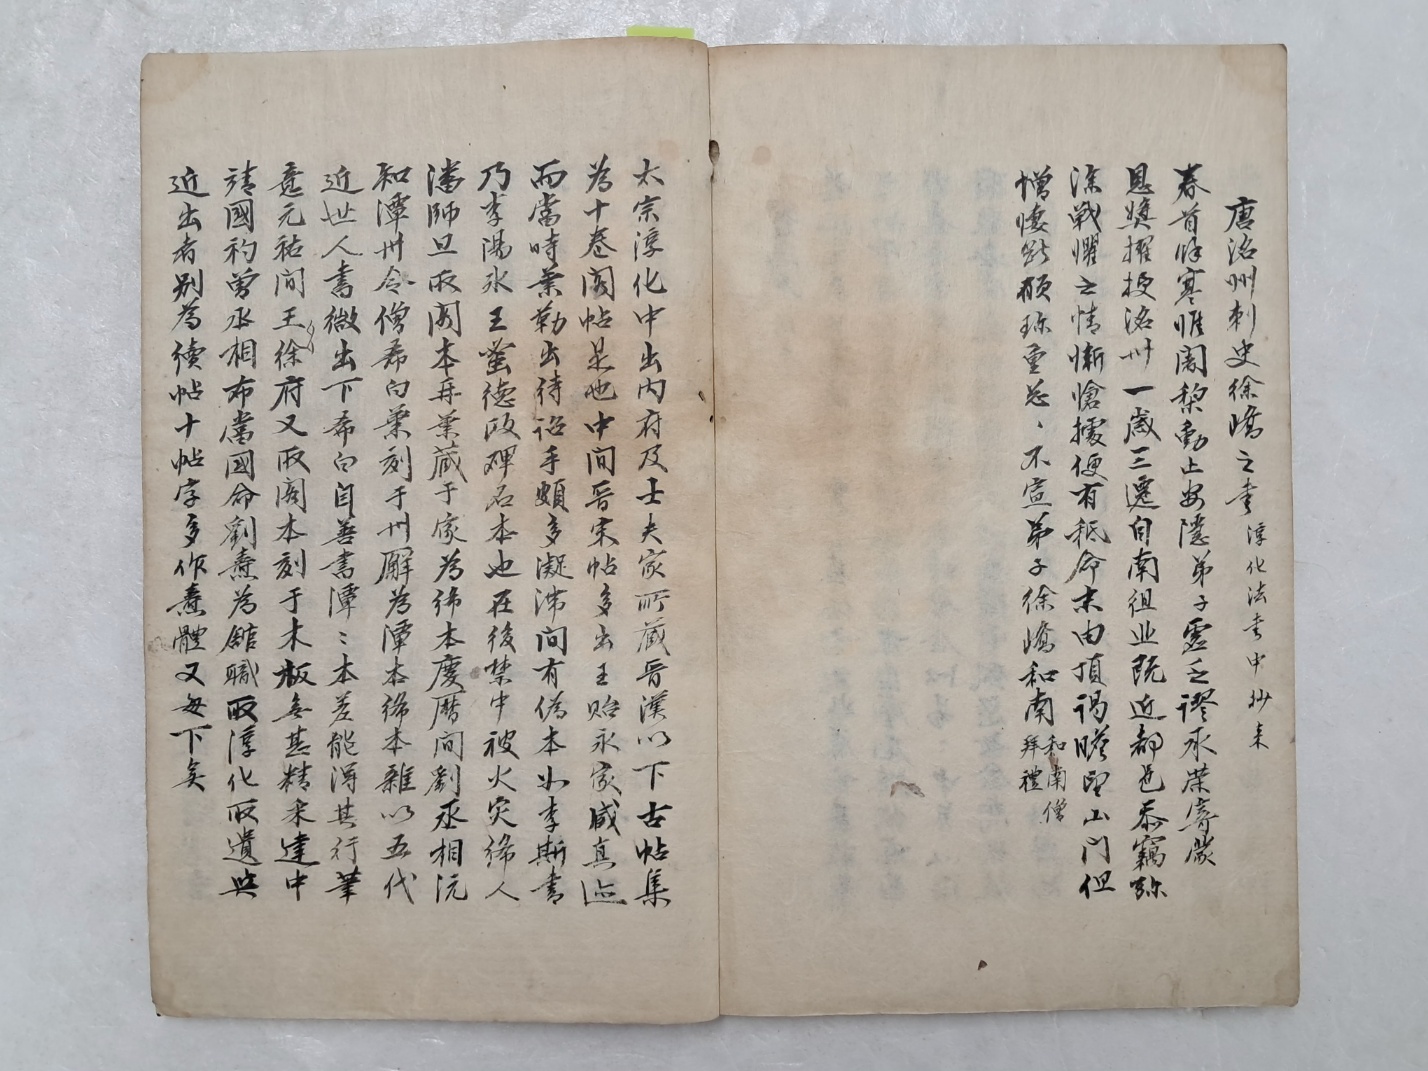 唐洺州刺史徐嶠之書 淳化法書中抄来
春首餘寒惟闍黎動止安隱弟子虛乏謬承榮寄蒙
恩奬擢授洺州一歲三遷自南徂北既近都邑忝竊弥
深戰懼之情慚愴據便有秪命末由頂謁瞻望山門但
増悽斷願珎重〻不宣弟子徐嶠和南
和南僧
拜禮
太宗淳化中出内府及士夫家所蔵晉漢以下古帖集
為十巻閣帖是也中間晉宋帖多出王貽永家咸真迹
而當時葉勒出待詔手頗多凝滞間有偽本如李斯書
乃李陽氷王蜜徳政碑石本也在後禁中被火災絳人
潘師旦取閣本再葉蔵于家為絳本慶暦間劉丞相沆
知潭州令僧希白葉刻于州廨為潭本絳本雜以五代
近世人書微出下希白自善書潭〻本差能得其行筆
意元祐間王徐府又取閣本刻于木板無甚精采建中
靖國初曽丞相布當國命劉燾為館職取淳化取遺与
近出者别為續帖十帖字多作燾體又毎下矣